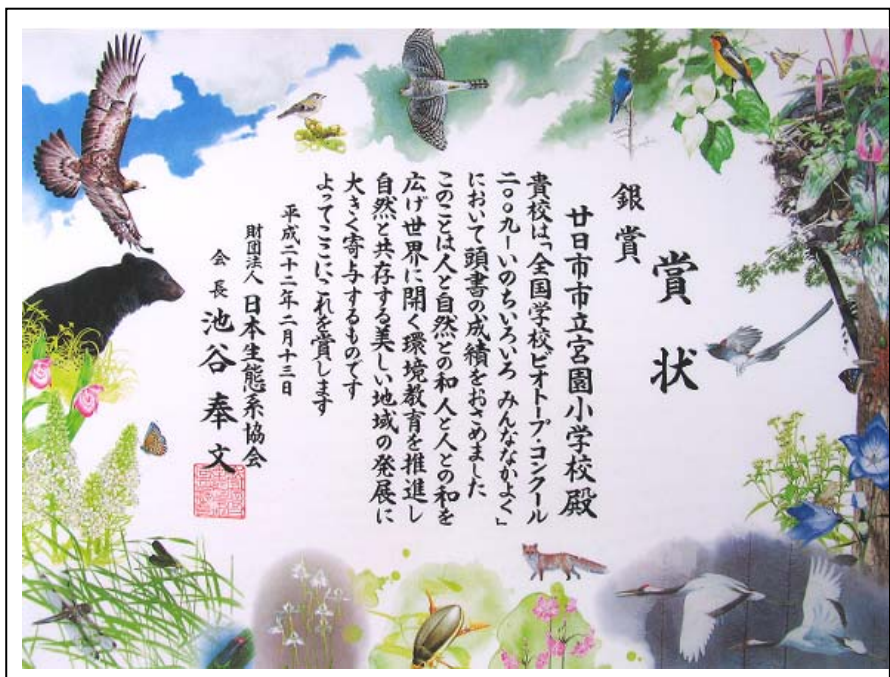 賞状
銀賞
廿日市市立宮園小学校殿
貴校は「全国学校ビオトープ・コンクール
二〇〇九ーいのちいろいろ みんななかよく」
において頭書の成績をおさめました
このことは人と自然との和 人と人との和を
広げ世界に開く環境教育を推進し
自然と共存する美しい地域の発展に
大きく寄与するものです
よってここにこれを賞します
平成二十二年二月十三日
財団法人 日本生態系協会
会長 池谷奉文